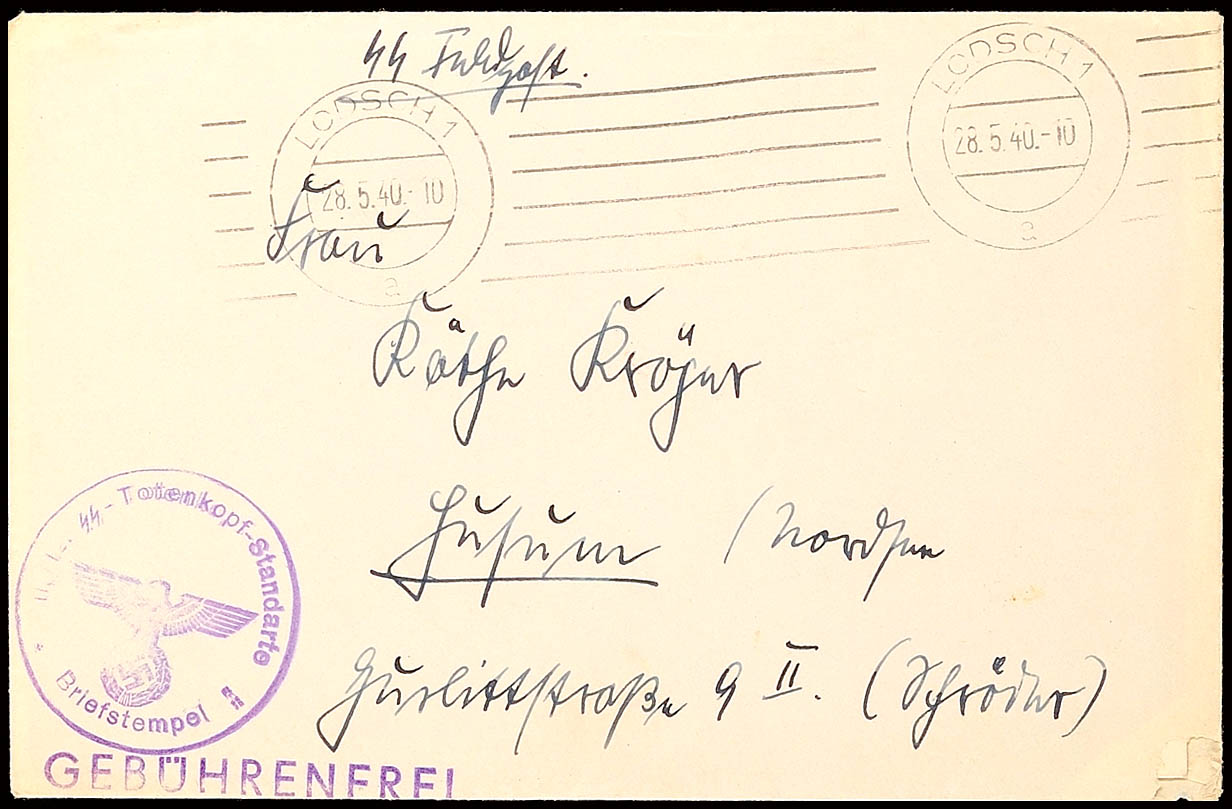 SS Feldpost.
LODSCH 1
28.5.40.-10
a
LODSCH 1
28.5.40.-10
a
Frau
Käthe Kröger
Husum (Nordsee
Gurlittstraße 9 II. (Schröder)
SS-Totenkopf-Standarte
Briefstempel
GEBÜHRENFREI